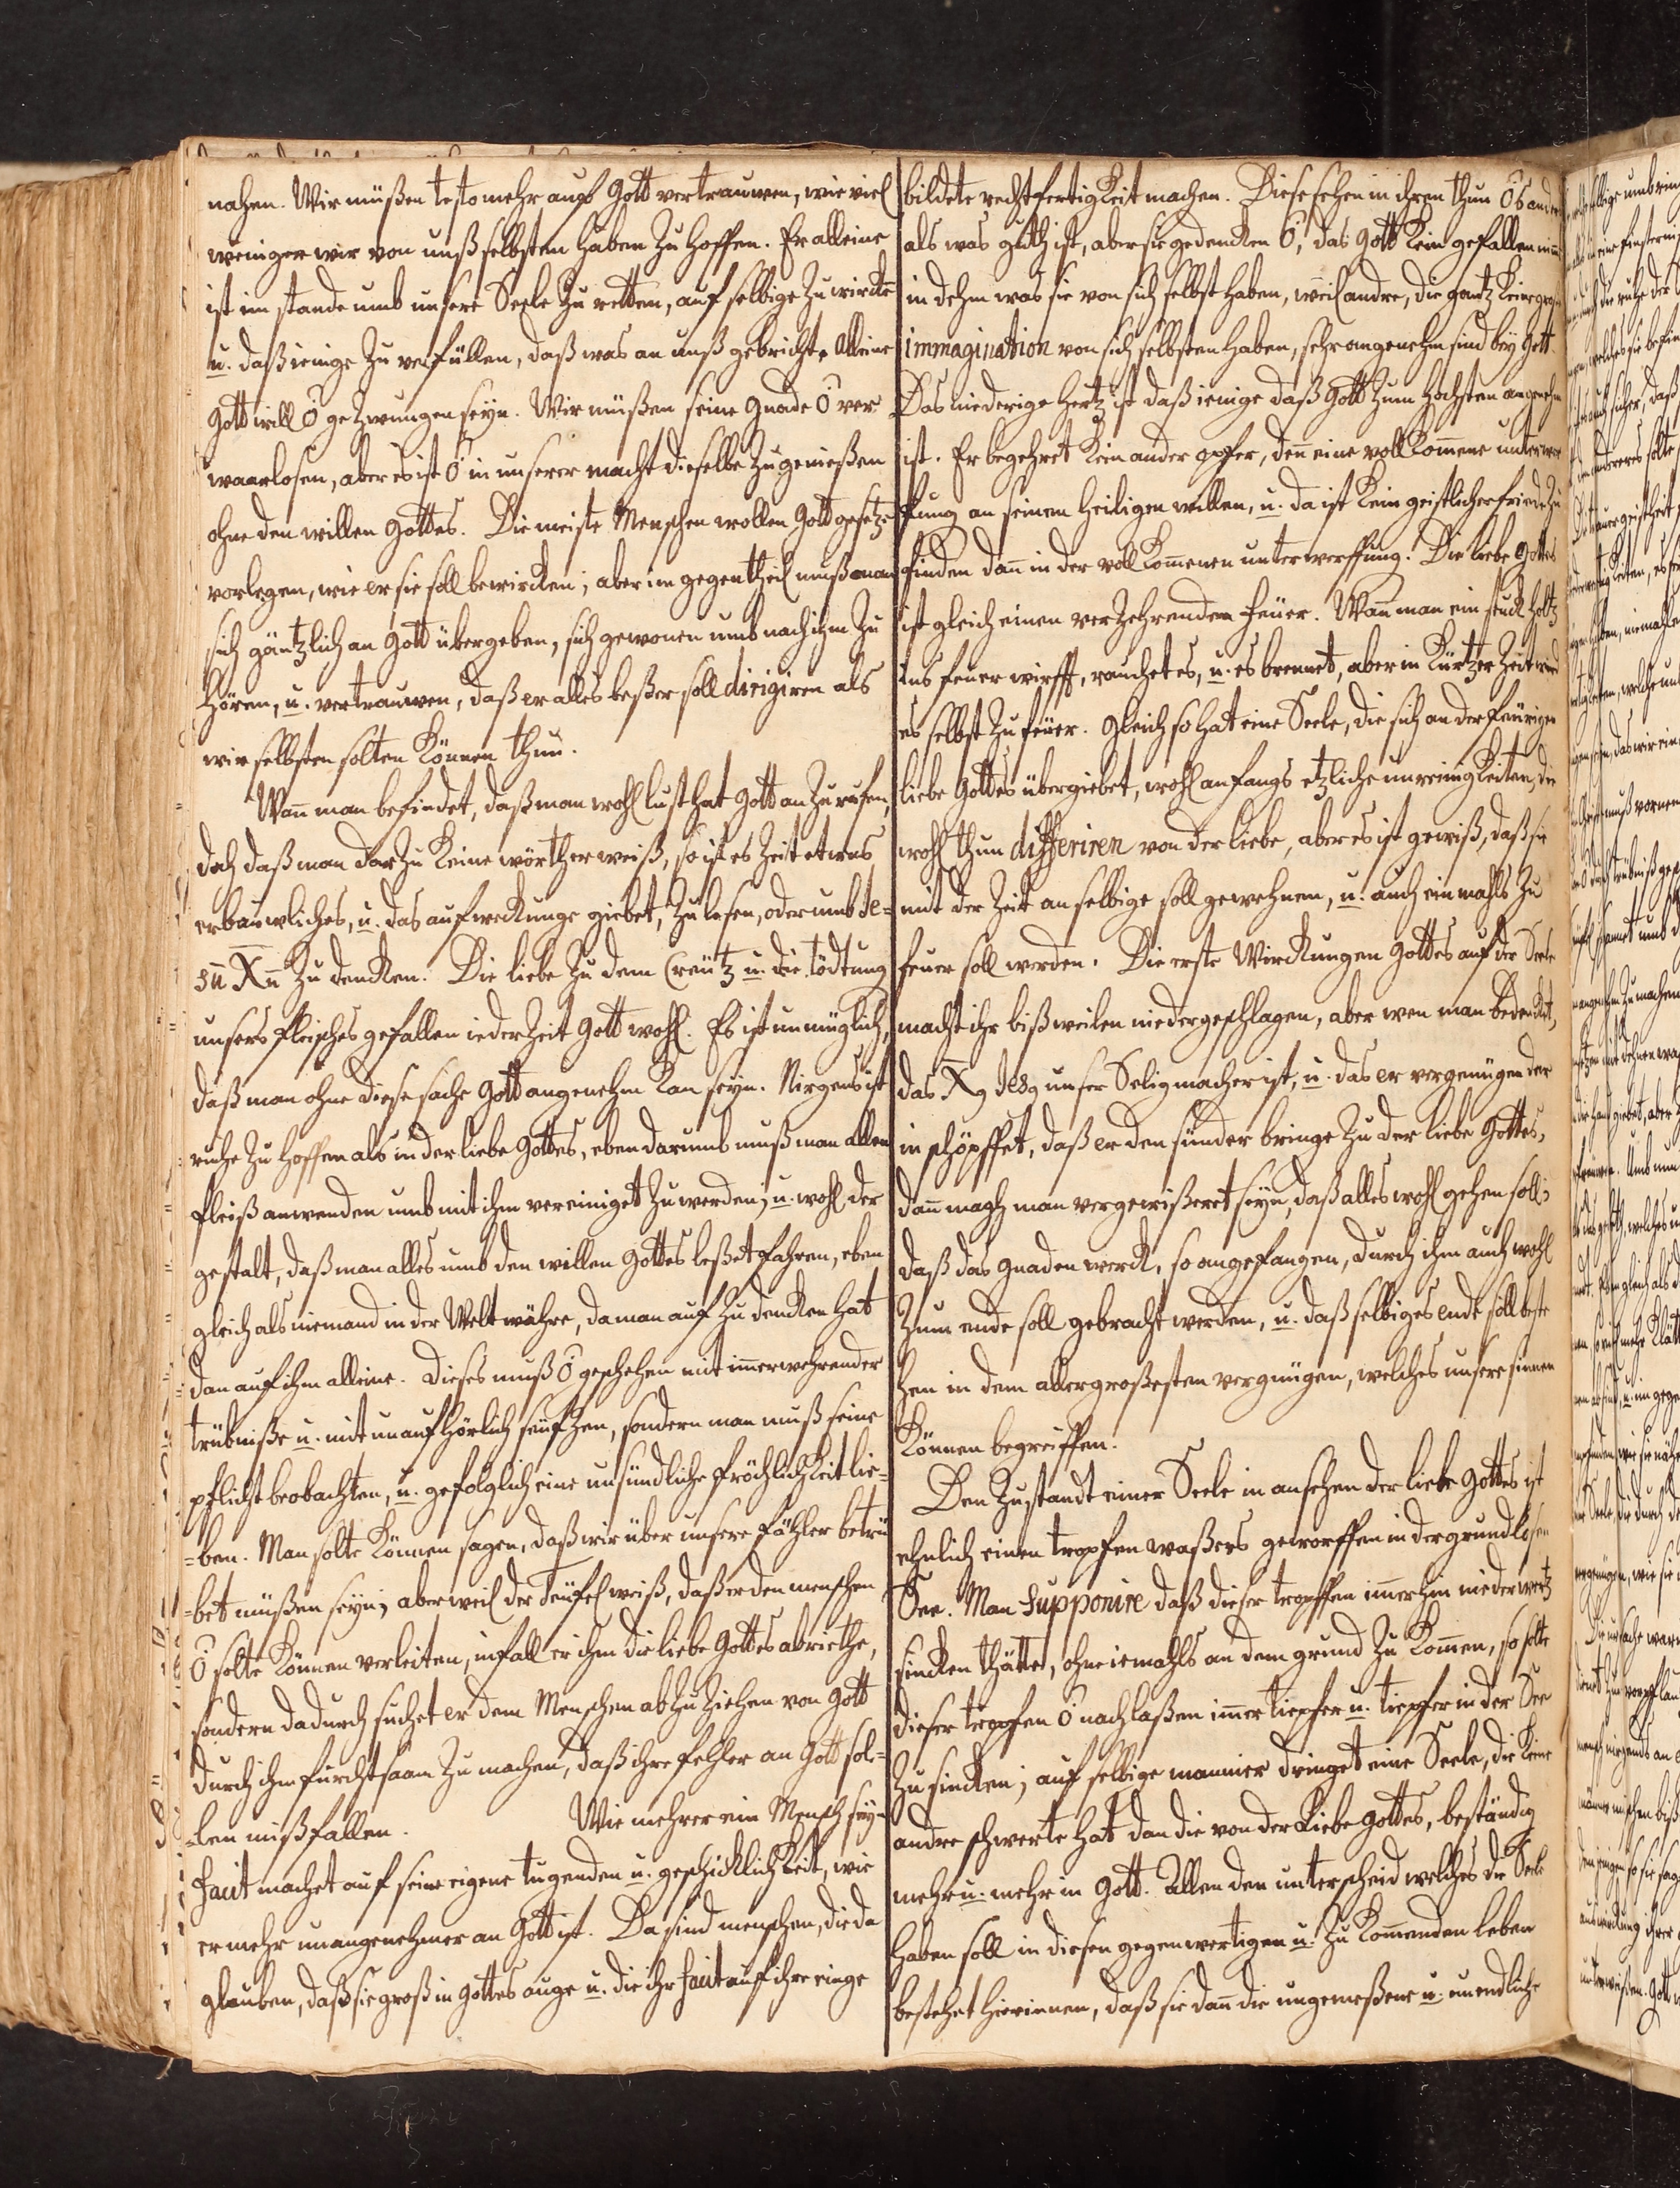 nahen. Wir müßen testo mehr auf Gott vertrauwen, wie viel
weniger wir von unß selbsten haben zu hoffen. Er alleine
ist im stande umb unsere Seele zu retten, auf selbige zu wircke
u. daß ienige zu erfüllen, daß was an unß gebricht. Alleine
Gott will O gezwungen seyn. Wir müßen seine Gnade O ver
waarlosen, aber es ist O in unserer macht dieselbe zu genießen
ohne den willen Gottes. Die meiste Menschen wollen Gott gesetze
vorlegen, wie er sie soll bewircken; aber im gegentheil muß man
sich gäntzlich an Gott übergeben, sich gewonen umb nach ihm zu
hören, u. vertrauwen, daß er alles beßer soll dirigiren als
wir selbsten solten können thun.
Wañ man befindet, daß man wohl lust hat Gott anzurufen,
doch daß man darzu keine wörther weiß, so ist es Zeit etwas
erbauwliches, u. das aufweckunge giebet, zu lesen, oder umb Je=
sũ Xũ zu dencken. Die liebe zu dem Creütz u. die tödtung
unsers fleisches gefallen iederzeit Gott wohl. Es ist unmüglich,
daß man ohne diese sache Gott angenehm kan seyn. Nirgens ist
ruhe zu hoffen als in der liebe Gottes, eben darumb muß man allen
fleiß anwenden umb mit ihm vereiniget zu werden, u. wohl der
gestalt, daß man alles umb den willen Gottes leßet fahren, eben
gleich als niemand in der Welt währe, da man auf zu dencken hat
dan auf ihm alleine. Dieses muß O geschehen mit im̃erwehrender
trübniße u. mit unaufhörlich seüfzen, sondern man muß seine
pflicht beobachten, u. gefolglich eine unsündliche fröchlichkeit lie=
=ben. Man solte können sagen, daß wir über unsere fähler betrü
=bet müßen seyn; aber weil der Teüfel weiß, daß er den menschen
O solte können verleiten, infall er ihm die liebe Gottes abriethe,
sondern dadurch suchet er dem Menschen abzuziehen von Gott
durch ihm furchtsaam zu machen, daß ihre fehler an Gott sol=
=len mißfallen. Wie mehrer ein Mensch sey=
facit machet auf seine eigene tugenden u. geschicklichkeit, wie
er mehr unangenehmer an Gott ist. Da sind menschen, die da
glauben, daß sie groß in Gottes auge u. die ihr facit auf ihre einge
bildete rechtfertigkeit machen. Diese sehen in ihren thun O's ander
als was guth ist, aber sie gedencken O, das Gott kein gefallen nim̃
in dehm was sie von sich selbst haben, weil andre, die gantz keine große
immagination von sich selbsten haben, sehr angenehm sind beÿ Gott.
Das niedrige hertz ist daß ienige daß Gott zum höchsten angenehm
ist. Er begehret kein ander opfer, deñ eine vollkom̃ene unterwer
fung an seinem heiligen willen, u. da ist kein geistlicher friede zu
finden dañ in der vollkom̃enen unterwerffung. Die liebe Gottes
ist gleich einen verzehrenden feüer. Wañ man ein stuck holtz
ins feuer wirfft, rauchet es, u. es brennet, aber in kürtzer Zeit wird
es selbst zu feüer. Gleich so hat eine Seele, die sich an der feürigen
liebe Gottes übergiebet, wohl anfangs etzliche unreinigkeiten, die
wohl thun differiren von der liebe, aber es ist gewiß, daß sie
mit der Zeit an selbige soll gewehnen, u. auch einmahls zu
feuer soll werden. Die erste Wirckungen Gottes auf der Seele
macht ihr bißweilen niedergeschlagen, aber wen man bedencket,
das X9 Jes9 unser Seligmacher ist, u. das er vergenügen dar
in schöpffet, daß er den sünder bringe zu der liebe Gottes,
dañ magh man vergewißeret seyn, daß alles wohl gehen soll;
daß das gnadenwerck, so angefangen, durch ihm auch wohl
zum ende soll gebracht werden, u. daß selbiges ende soll beste
hen in dem allergroßesten vergnügen, welches unsere sinnen
können begreiffen.
Den Zustandt einer Seele in ansehen der liebe Gottes ist
ehnlich einen tropfen waßers geworffen in der grundlosen
See. Man supponire daß dieser tropffen im̃erhin niederwertz
sincken thätte, ohne iemahls an dem grund zu kom̃en, so solte
dieser tropfen O nachlaßen im̃er tiepfer u. tiepfer in der See
zu sincken; auf selbige mannier dringet eine Seele, die keine
andre schwerte hat dan die von der Liebe Gottes, beständig
mehr u. mehr in Gott. Allen den unterscheid welches die Seele
haben soll in diesen gegenwertigen u. zukom̃enden leben
bestehet hierinnen, daß sie dañ die ungemeßene u. unendliche